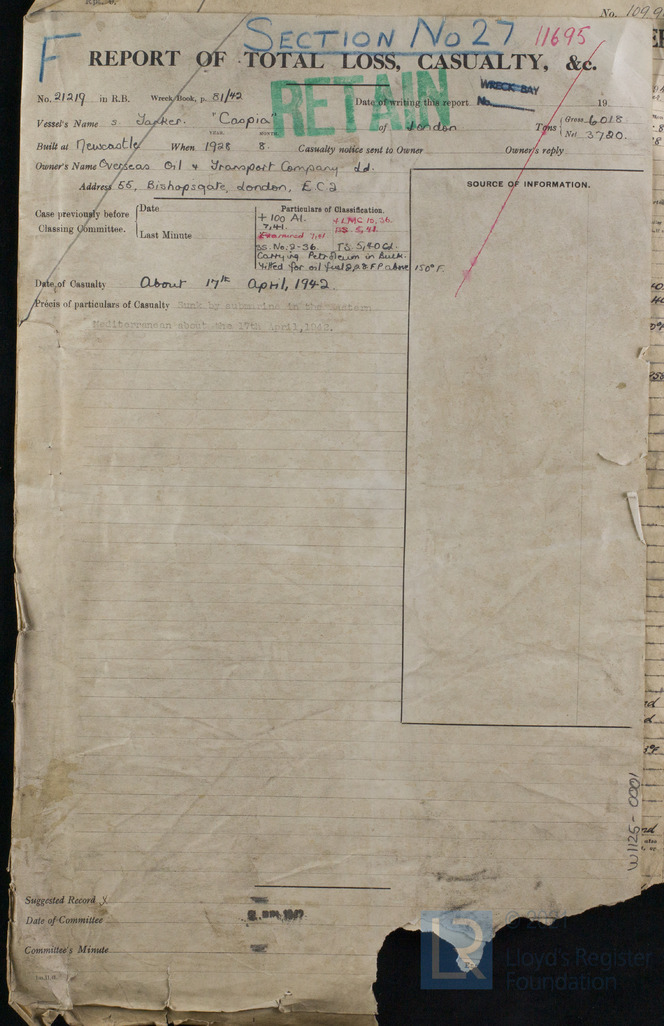 No. 109
SECTION No 27
11695
F
REPORT OF TOTAL LOSS, CASUALTY, &c.
RETAIN
WRECK BAY
No.
No. 21219 in R.B. Wreck Book, p. 81/42
Date of writing this report 19
Vessel's Name s. Tanker. "Caspia" of London
Tons Gross 6018
Net 3720
YEAR. MONTH.
Built at Newcastle When 1928 8. Casualty notice sent to Owner Owner's reply
Owner's Name Overseas Oil & Transport Company Ld.
Address 55, Bishopsgate, London, E.C.2
SOURCE OF INFORMATION.
Case previously before Classing Committee.
Date
Last Minute
Particulars of Classification.
+ 100 A1. + LMC 10,36.
7,41. BS. 5,41.
Examined 7,41
SS. No. 2-36. TS. 5,40 Cl.
Carrying Petroleum in Bulk.
Fitted for oil fuel 2,28 F.P. above 150°F.
Date of Casualty About 17th April, 1942.
Précis of particulars of Casualty Sunk by submarine in the Eastern
Mediterranean about the 17th April, 1942.
W1125-0001
Suggested Record
Date of Committee
Committee's Minute
LR
Lloyd's Register
Foundation